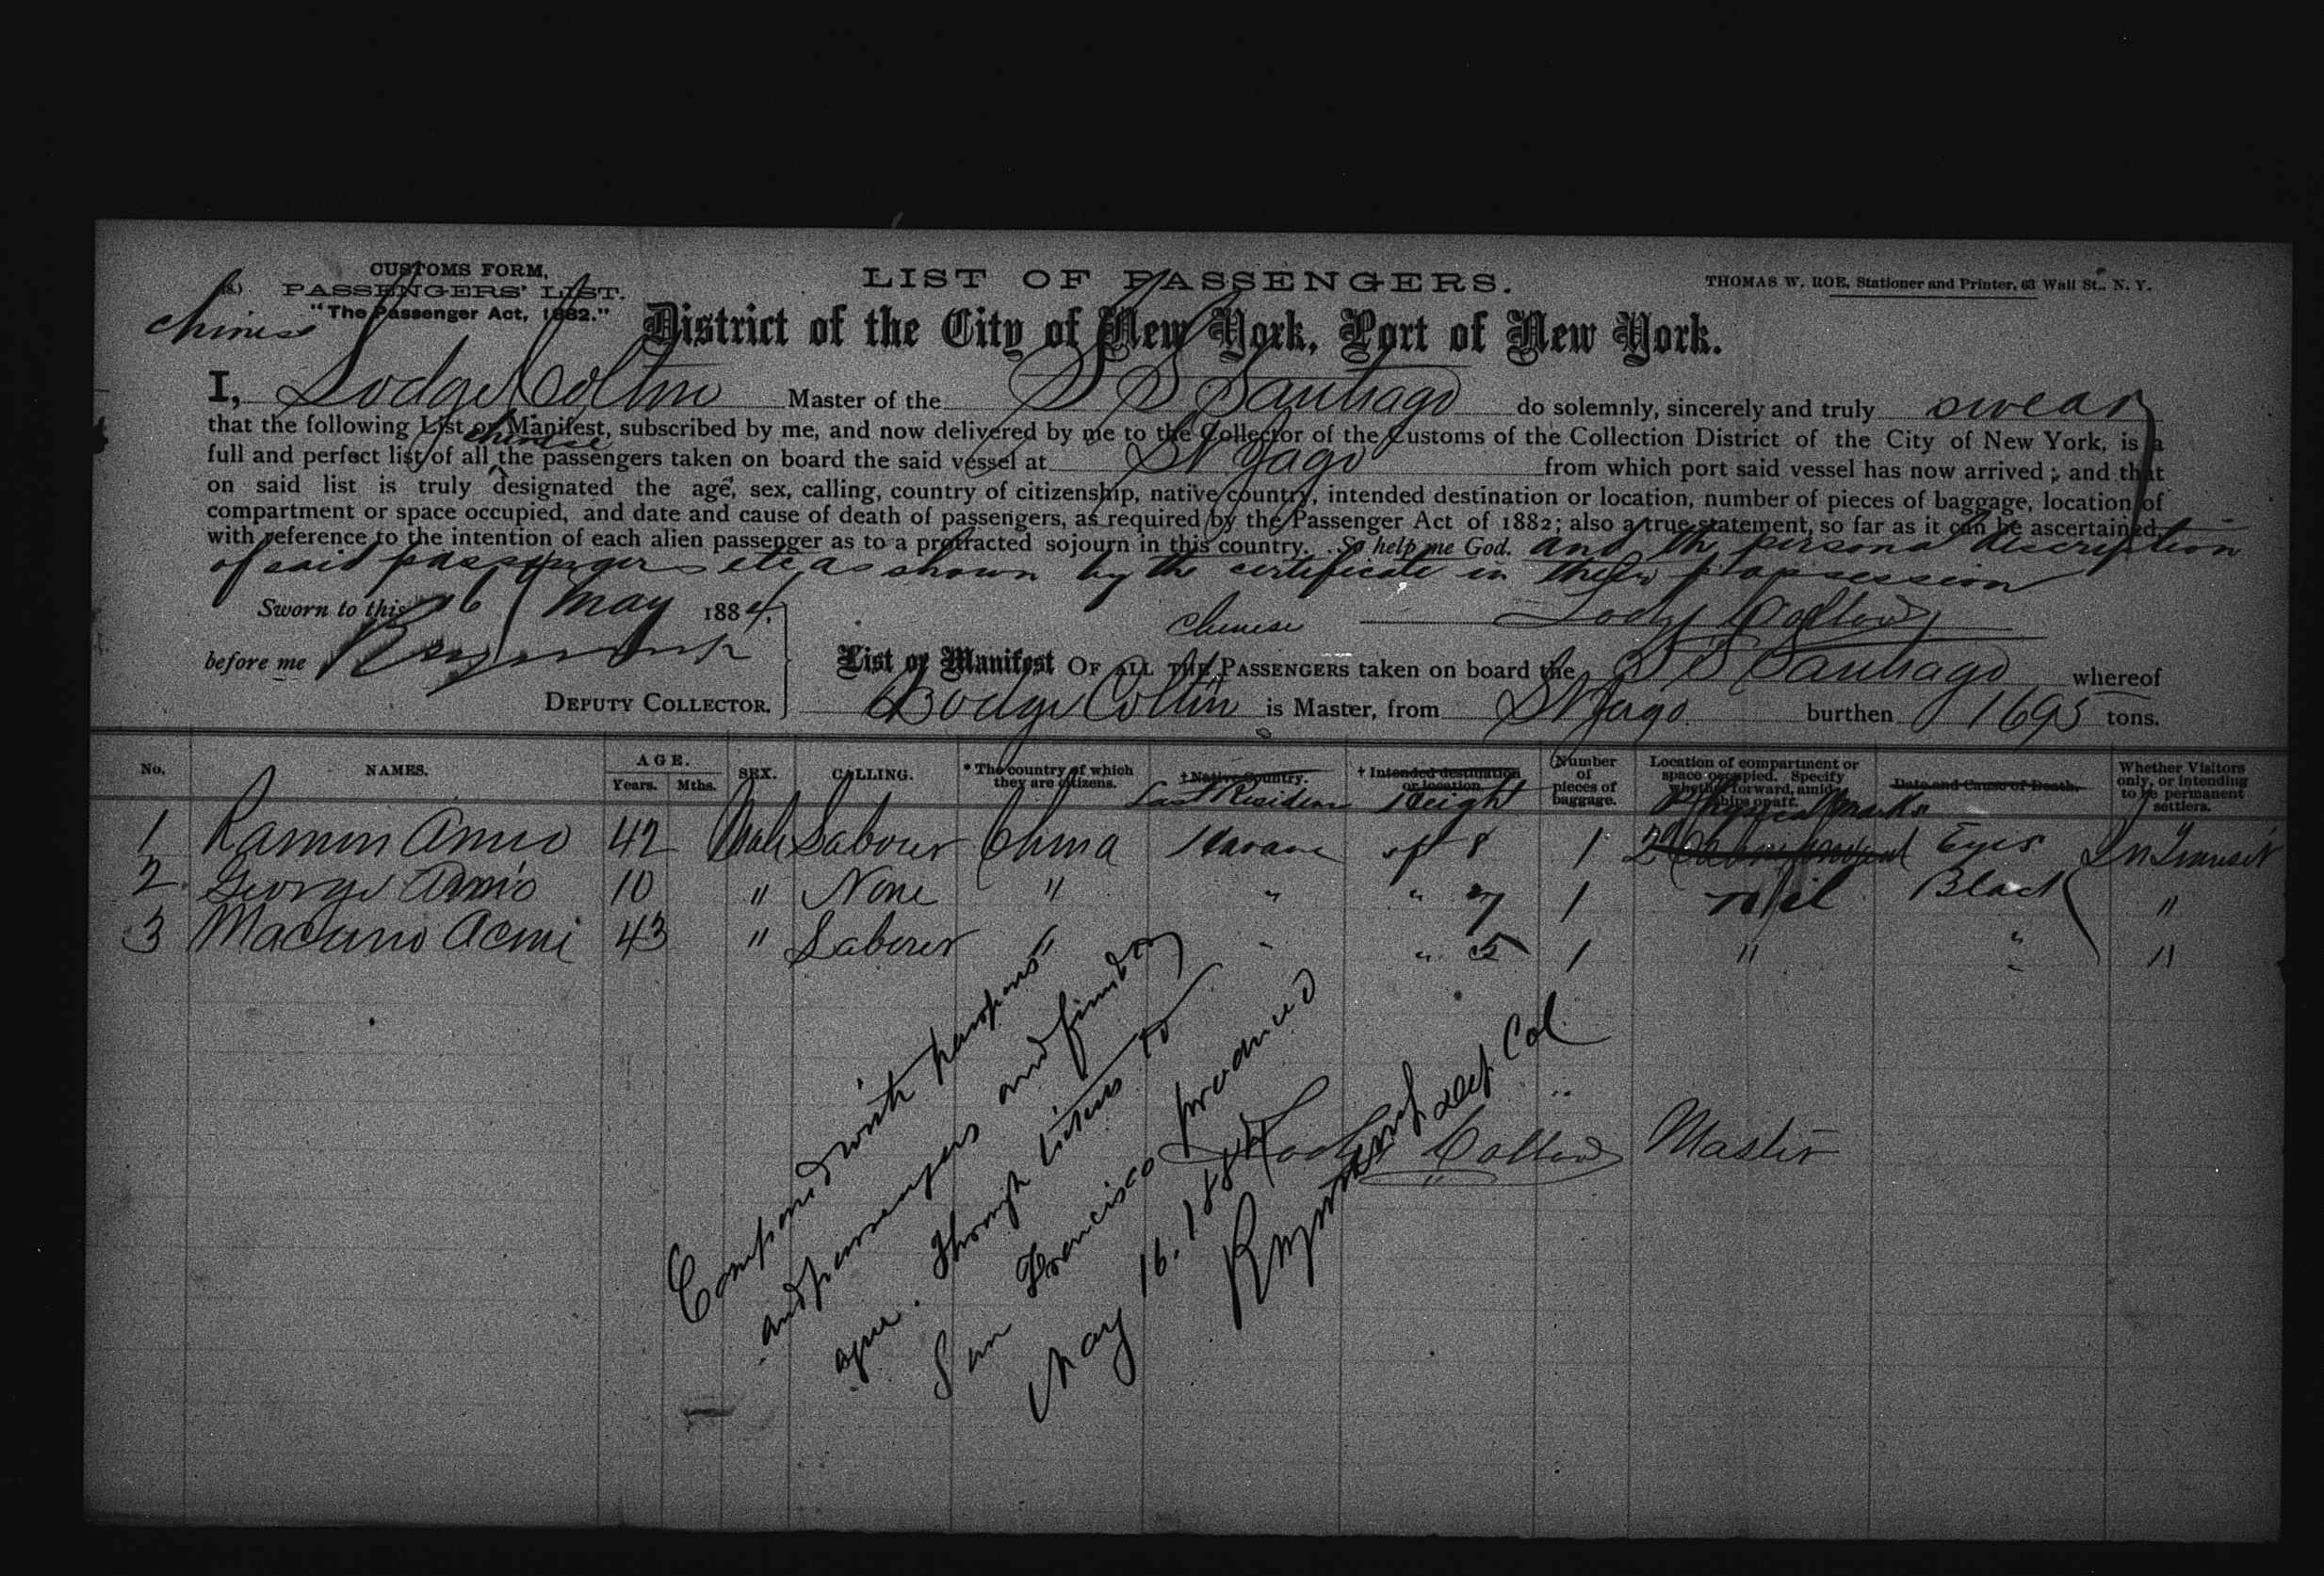 CUSTOMS FORM,
PASSENGERS' LIST.
"The Passenger Act, 1882."
Chinese
LIST OF PASSENGERS.
THOMAS W. ROE, Stationer and Printer, 63 Wall St., N. Y.
District of the City of New York, Port of New York.
I, Master of the S S Santiago do solemnly, sincerely and truly swear
that the following List or Manifest, subscribed by me, and now delivered by me to the Collector of the Customs of the Collection District of the City of New York, is a
chinese
full and perfect list of all the passengers taken on board the said vessel at St Jago from which port said vessel has now arrived; and that
on said list is truly designated the age, sex, calling, country of citizenship, native country, intended destination or location, number of pieces of baggage, location of
compartment or space occupied, and date and cause of death of passengers, as required by the Passenger Act of 1882; also a true statement, so far as it can be ascertained,
with reference to the intention of each alien passenger as to a protracted sojourn in this country. So help me God. and the personal description
of said passengers etc as shown by the certificate in their possession
Sworn to this 16 May 1884.
before me
DEPUTY COLLECTOR.
chinese
List or Manifest OF ALL THE PASSENGERS taken on board the S S Santiago whereof
is Master, from St Jago burthen 1695 tons.
No. NAMES. AGE. Years. Mths. SEX. CALLING. * The country of which they are citizens. † Native Country. † Intended destination or location. Number of pieces of baggage. Location of compartment or space occupied. Specify whether forward, amidships or aft. Date and Cause of Death. Whether Visitors only, or intending to be permanent settlers.
Last Residence Height Physical marks
1 Ramon 42 Male Labour China Havana 1 Eyes In Transit
2 George 10 " None " " " 7 1 Nil Black "
3 43 " Laborer " " " 5 1 " " "
Compared with passports
and passengers and find to
agree. Through tickets to
San Francisco produced
May 16. 1884
Dep Col
Master